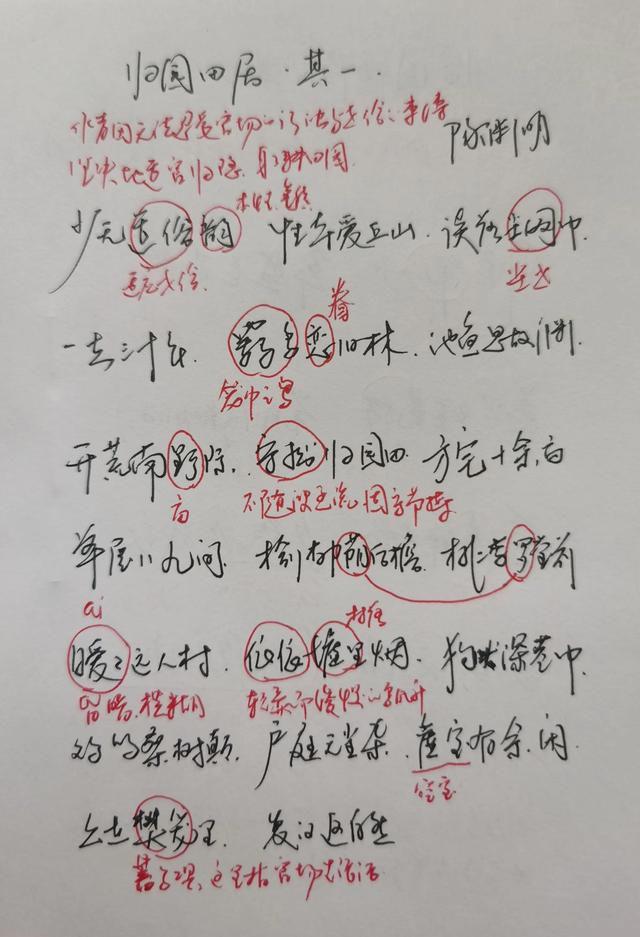 归园田居·其一.
作者因无法忍受官场的污浊与世俗
陶渊明
坚决地辞官归隐,躬耕田园
本性、气质
少无适俗韵 性本爱丘山. 误落尘网中.
适应世俗. 尘世
眷
一去三十年. 羁鸟恋旧林. 池鱼思故渊.
笼中之鸟
开荒南野际. 守拙归园田. 方宅十余亩
亩 不随波逐流,固守节操
草屋八九间. 榆柳荫后檐. 桃李罗堂前
ai 村落
暧暧远人村. 依依墟里烟. 狗吠深巷中.
昏暗,模糊 轻柔而缓慢的
鸡鸣桑树颠. 户庭无尘杂. 虚室有余闲.
空室
久在樊笼里. 复得返自然
这里指官场生活